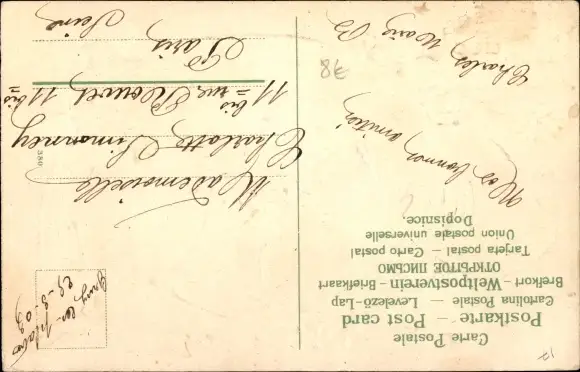 Carte Postale
Postkarte — Post card
Cartolina Postale — Levelező-Lap
Brefkort — Weltpostverein — Briefkaart
ОТКРЫТОЕ ПИСЬМО
Tarjeta postal — Carto postal
Union postale universelle
Dopisnice.
29-8-03
Mademoiselle
Charlotte
11 bis rue 11 bis
Paris
Seine
Mes bonnes amitiés
Charles
78
380
17